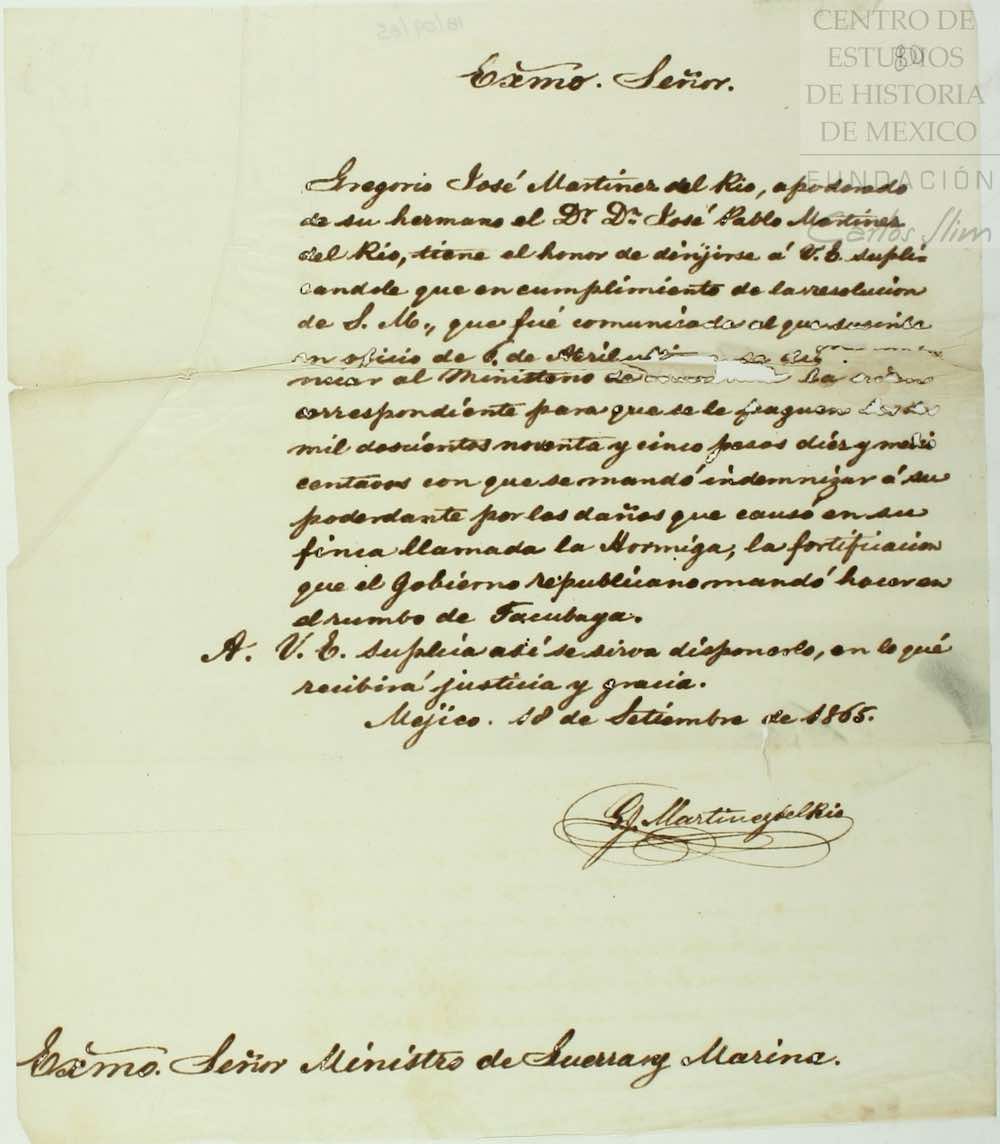 CENTRO DE
ESTUDIOS
DE HISTORIA
DE MEXICO
FUNDACIÓN
Carlos Slim
80
18/09/65
Exmo. Señor.
Gregorio José Martinez del Rio, apoderado
de su hermano el Dr. Dn. José Pablo Martinez
del Rio, tiene el honor de dirijirse á V. E. supli-
candole que en cumplimiento de la resolucion
de S. M., que fué comunicada al que suscribe
en oficio de 6 de Abril se
niciar al Ministerio de la orden
correspondiente para que se le paguen los dos
mil doscientos noventa y cinco pesos diez y medio
centavos con que se mandó indemnizar á su
poderdante por los daños que causó en su
finca llamada la Hormiga, la fortificacion
que el Gobierno republicano mandó hacer en
el rumbo de Tacubaya.
A. V. E. suplica asi se sirva disponerlo, en lo qué
recibirá justicia y gracia.
Mejico. 18 de Setiembre de 1865.
G. J. Martinez del Rio
Exmo. Señor Ministro de Guerra y Marina.